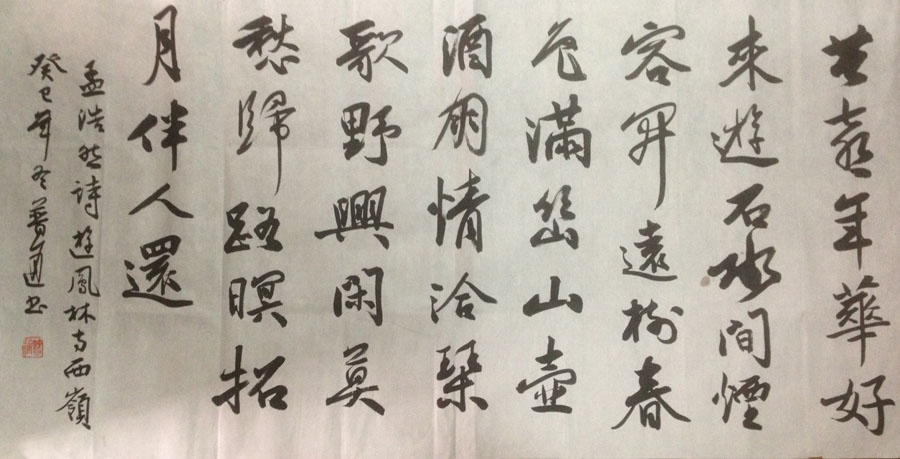 共喜年華好
來遊石水間煙
容開遠樹春
色滿幽山壺
酒朋情洽琴
歌野興閑莫
愁歸路暝招
月伴人還
孟浩然詩遊鳳林寺西嶺
癸巳年冬書